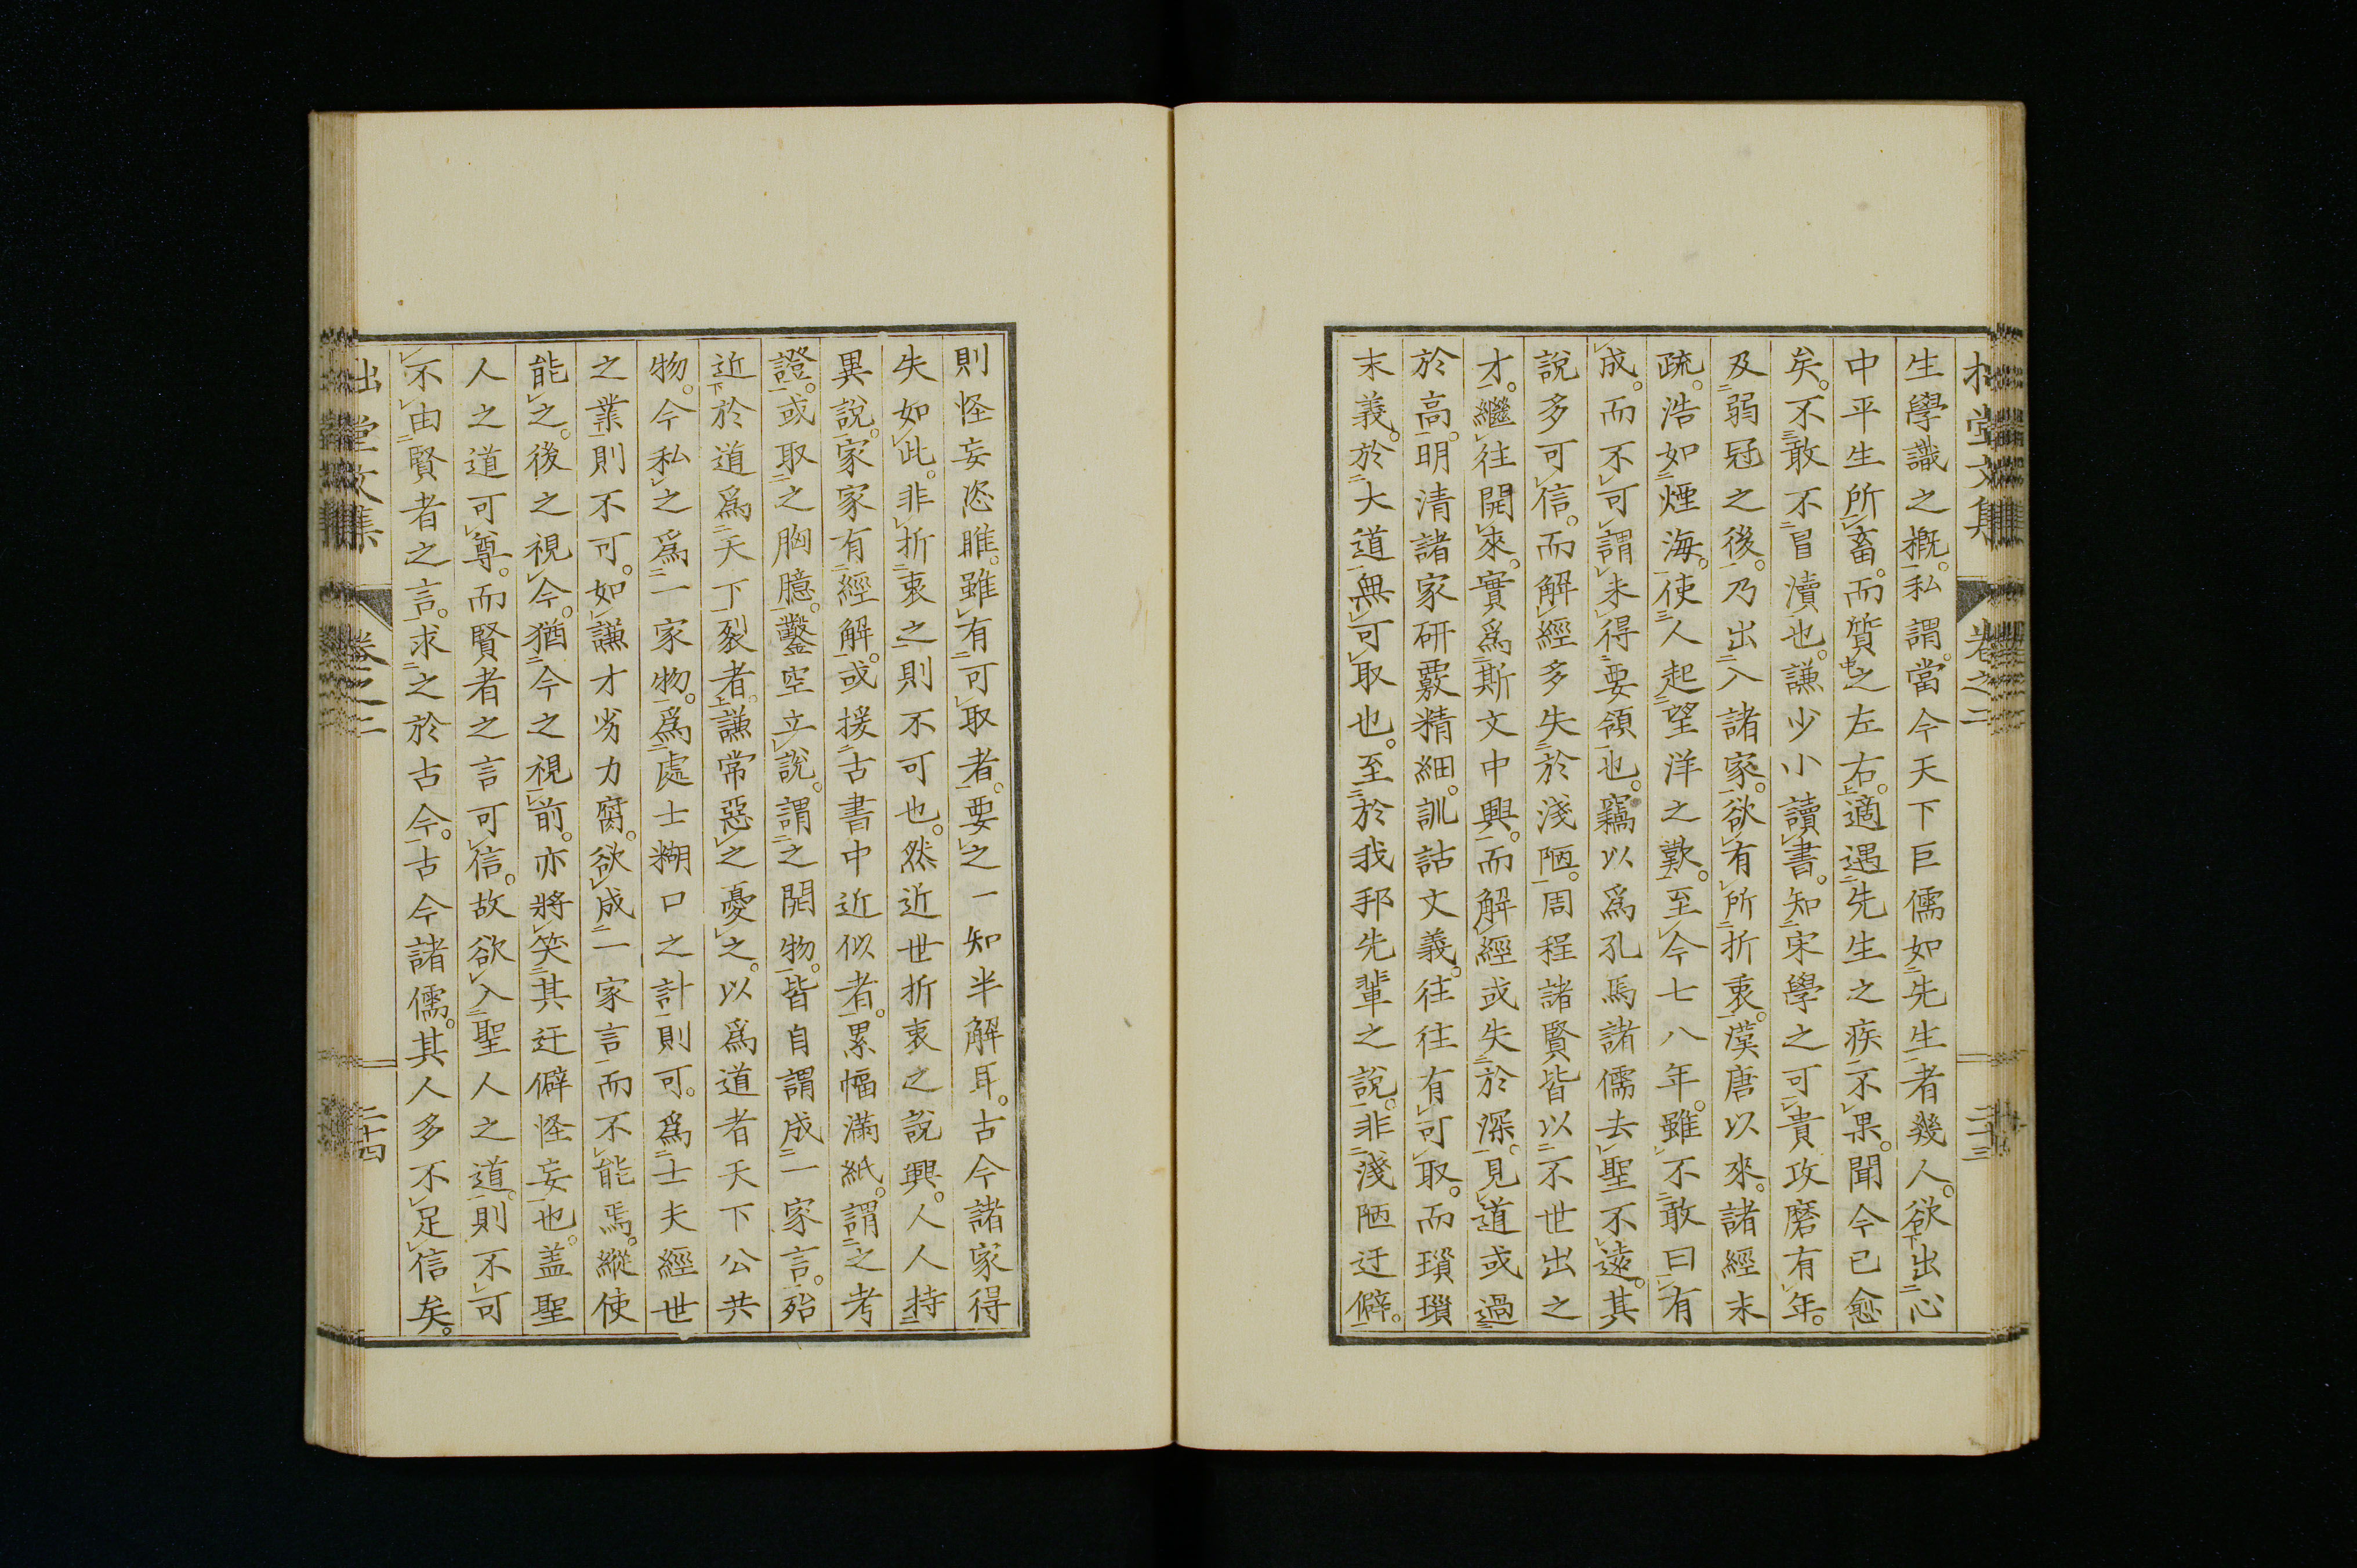 生學識之概。私謂。當今天下巨儒如先生者幾人。欲出心
中平生所畜。而質之左右。適遇先生之疾不果。聞今已愈
矣。不敢不冒瀆也。謙少小讀書。知宋學之可貴攻磨有年。
及弱冠之後。乃出入諸家。欲有所折衷。漢唐以來。諸經末
疏。浩如煙海。使人起望洋之歎。至今七八年。雖不敢曰有
成。而不可謂未得要領也。竊以爲孔焉諸儒去聖不遠。其
說多可信。而解經多失於淺陋。周程諸賢皆以不世出之
才。繼往開來。實爲斯文中興。而解經或失於深。見道或過
於高。明清諸家研覈精細。訓詁文義。往往有可取。而瑣瑣
末義。於大道無可取也。至於我邦先輩之說。非淺陋迂僻。
則怪妄恣睢。雖有可取者。要之一知半解耳。古今諸家得
失如此。非折衷之則不可也。然近世折衷之說興。人人持
異說。家家有經解。或援古書中近似者。累幅滿紙。謂之考
證。或取之胸臆。鑿空立說。謂之開物。皆自謂成一家言。殆
近於道爲天下裂者。謙常惡之憂之。以爲道者天下公共
物。今私之爲一家物。爲處士糊口之計則可。爲士夫經世
之業則不可。如謙才劣力腐。欲成一家言而不能焉。縱使
能之。後之視今。猶今之視前。亦將笑其迂僻怪妄也。盖聖
人之道可尊。而賢者之言可信。故欲入聖人之道。則不可
不由賢者之言。求之於古今。古今諸儒。其人多不足信矣。
堂文集 卷之二 二十三
堂文集 卷之二 二十四